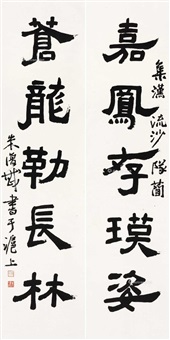 嘉鳳存璞姿
集漢流沙隊簡
蒼龍勒長林
朱復戡書于滬上